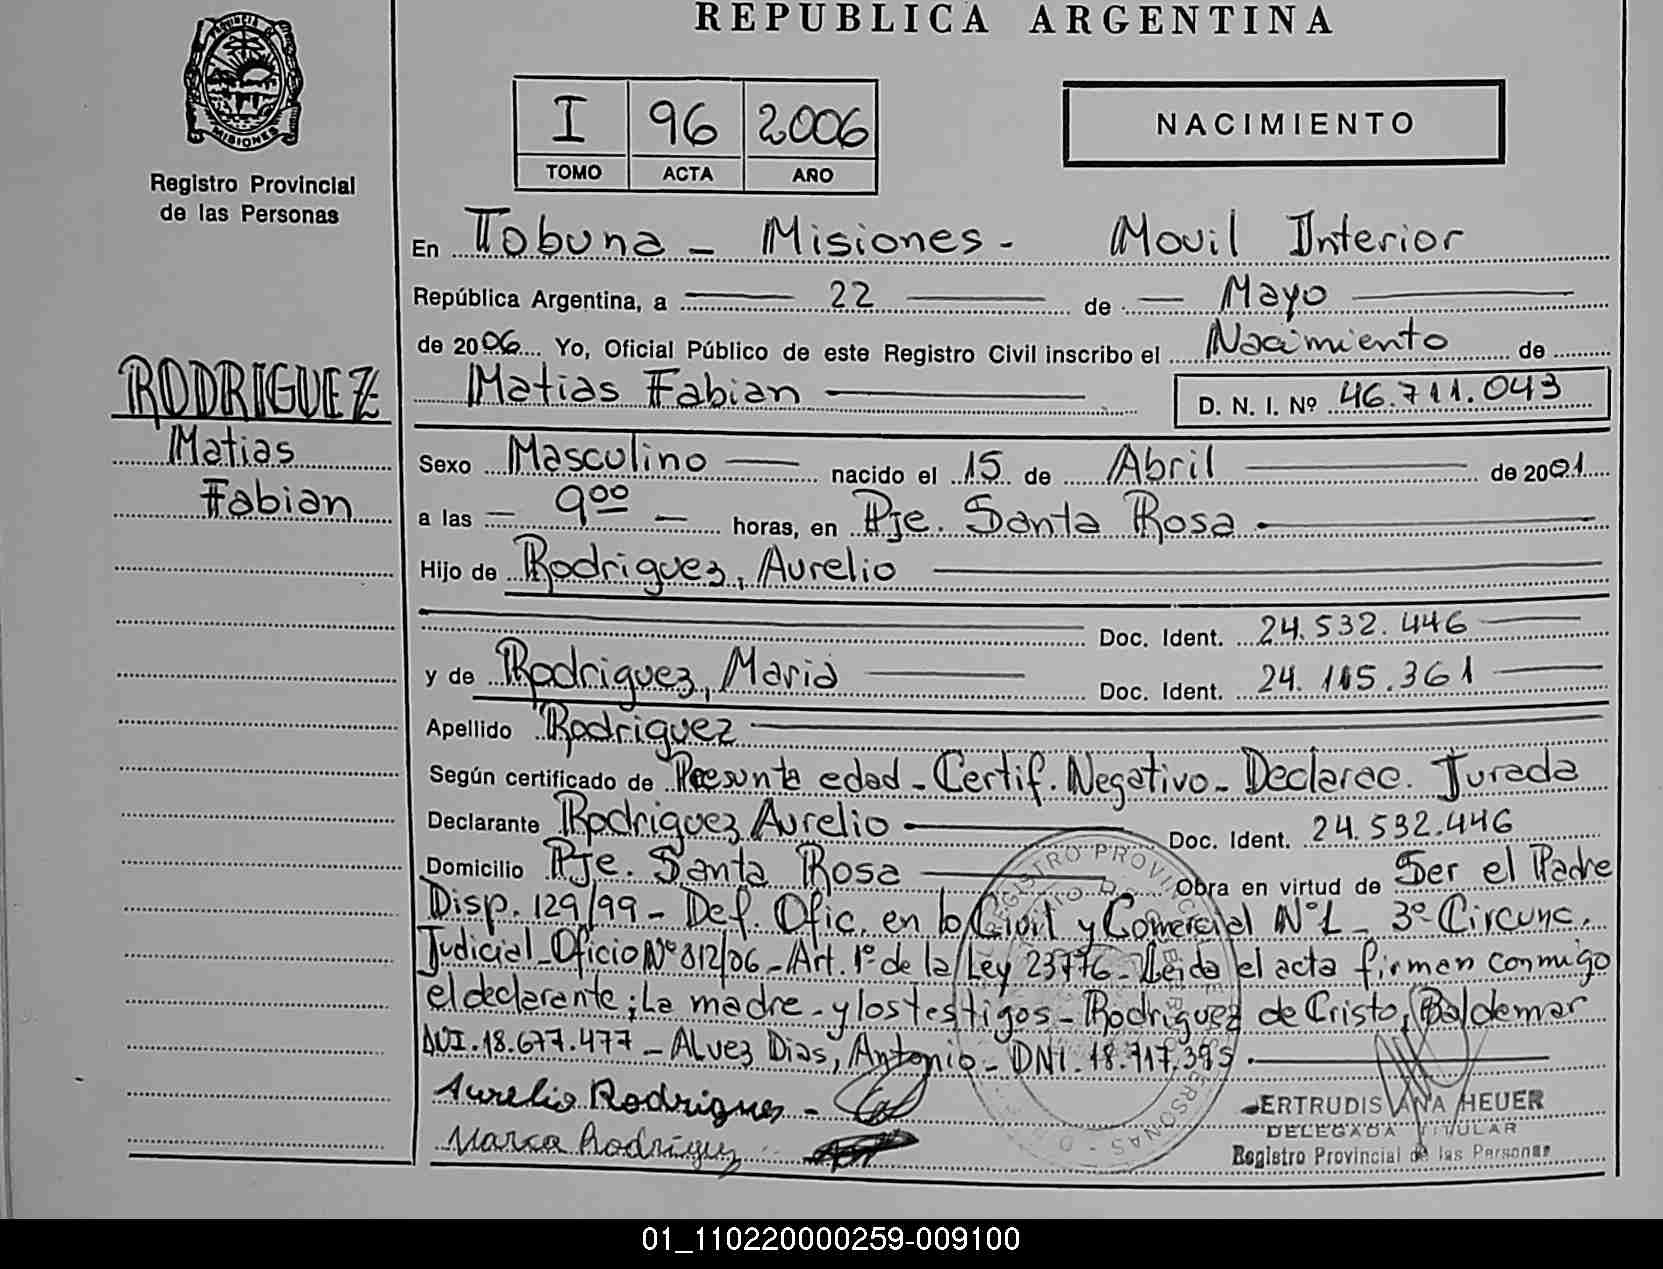 REPUBLICA ARGENTINA
PROVINCIA DE
MISIONES
Registro Provincial
de las Personas
I 96 2006
TOMO ACTA AÑO
NACIMIENTO
En Tobuna - Misiones - Movil Interior
República Argentina, a 22 de Mayo
de 2006 Yo, Oficial Público de este Registro Civil inscribo el Nacimiento de
Matias Fabian D. N. I. Nº 46.711.043
RODRIGUEZ
Matias
Fabian
Sexo Masculino nacido el 15 de Abril de 2001
a las 9⁰⁰ horas, en Pje. Santa Rosa
Hijo de Rodriguez, Aurelio
Doc. Ident. 24.532.446
y de Rodriguez, Maria Doc. Ident. 24.115.361
Apellido Rodriguez
Según certificado de Presunta edad - Certif. Negativo - Declarac. Jurada
Declarante Rodriguez Aurelio Doc. Ident. 24.532.446
Domicilio Pje. Santa Rosa Obra en virtud de Ser el Padre
Disp. 129/99 - Def. Ofic. en lo Civil y Comercial Nº 1 - 3º Circunc.
Judicial - Oficio Nº 812/06 - Art. 1º de la Ley 23776 - Leida el acta firman conmigo
el declarante; La madre - y los testigos - Rodriguez de Cristo, Baldemar
DNI. 18.677.477 - Alvez Dias, Antonio - DNI. 18.717.395
Aurelio Rodrigues -
Marca Rodriguez
ERTRUDIS ANA HEUER
DELEGADA TITULAR
Registro Provincial de las Personas
01_110220000259-009100